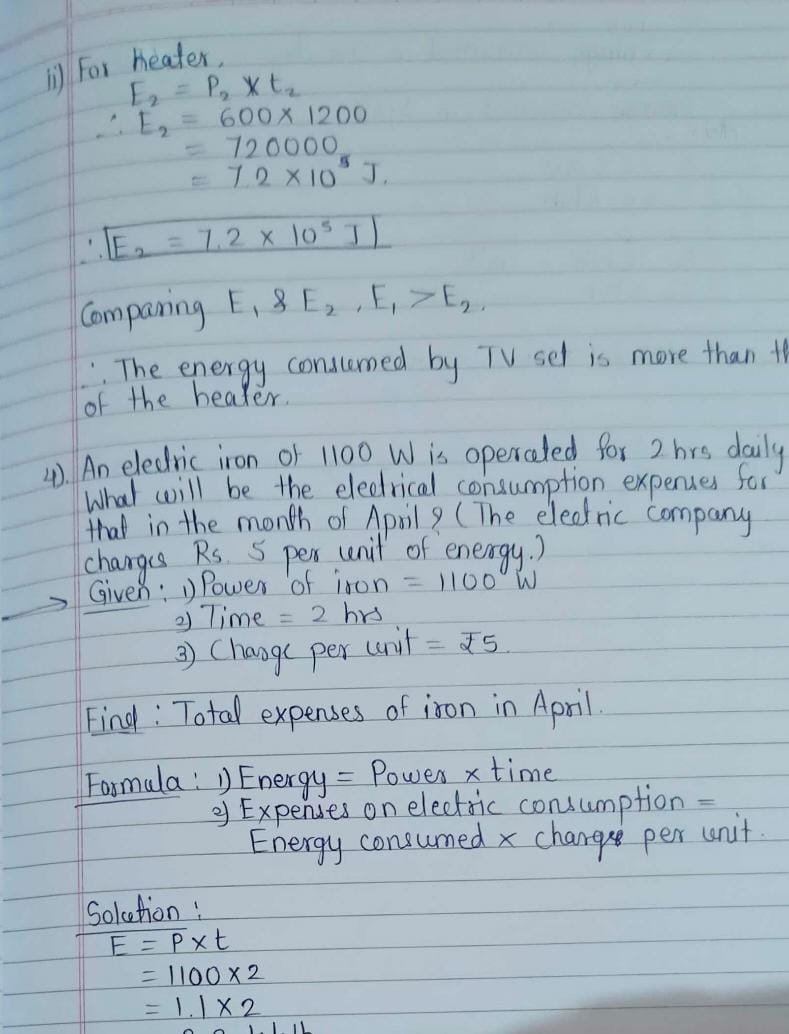 ii) For heater,
E₂ = P₂ × t₂
∴ E₂ = 600 × 1200
= 720000
= 7.2 × 10⁵ J.
∴ E₂ = 7.2 × 10⁵ J
Comparing E₁ & E₂, E₁ > E₂.
∴ The energy consumed by TV set is more than th
of the heater.
4). An electric iron of 1100 W is operated for 2 hrs daily
What will be the electrical consumption expenses for
that in the month of April? (The electric company
charges Rs. 5 per unit of energy.)
→ Given: 1) Power of iron = 1100 W
2) Time = 2 hrs
3) Charge per unit = ₹5.
Find: Total expenses of iron in April.
Formula: 1) Energy = Power × time
2) Expenses on electric consumption =
Energy consumed × charges per unit.
Solution:
E = P × t
= 1100 × 2
= 1.1 × 2